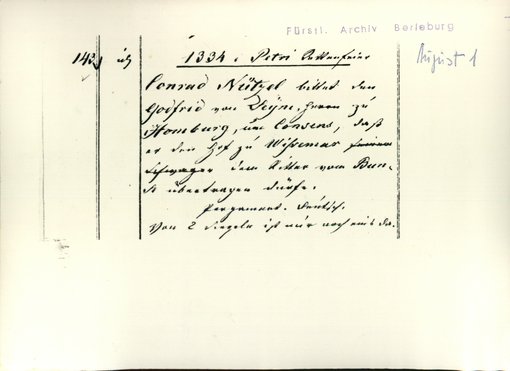 Fürstl. Archiv Berleburg
August 1
143 1334 i Petri Kettenfeier
Conrad Nützel bittet den
Godfrid von Seyn, Herrn zu
Homburg, um Consens, daß
er den Hof zu Wissemar seinem
Schwager dem Ritter vom
übertragen dürfe.
Pergament. Deutsch.
Von 2 Siegeln ist nur noch eins da.